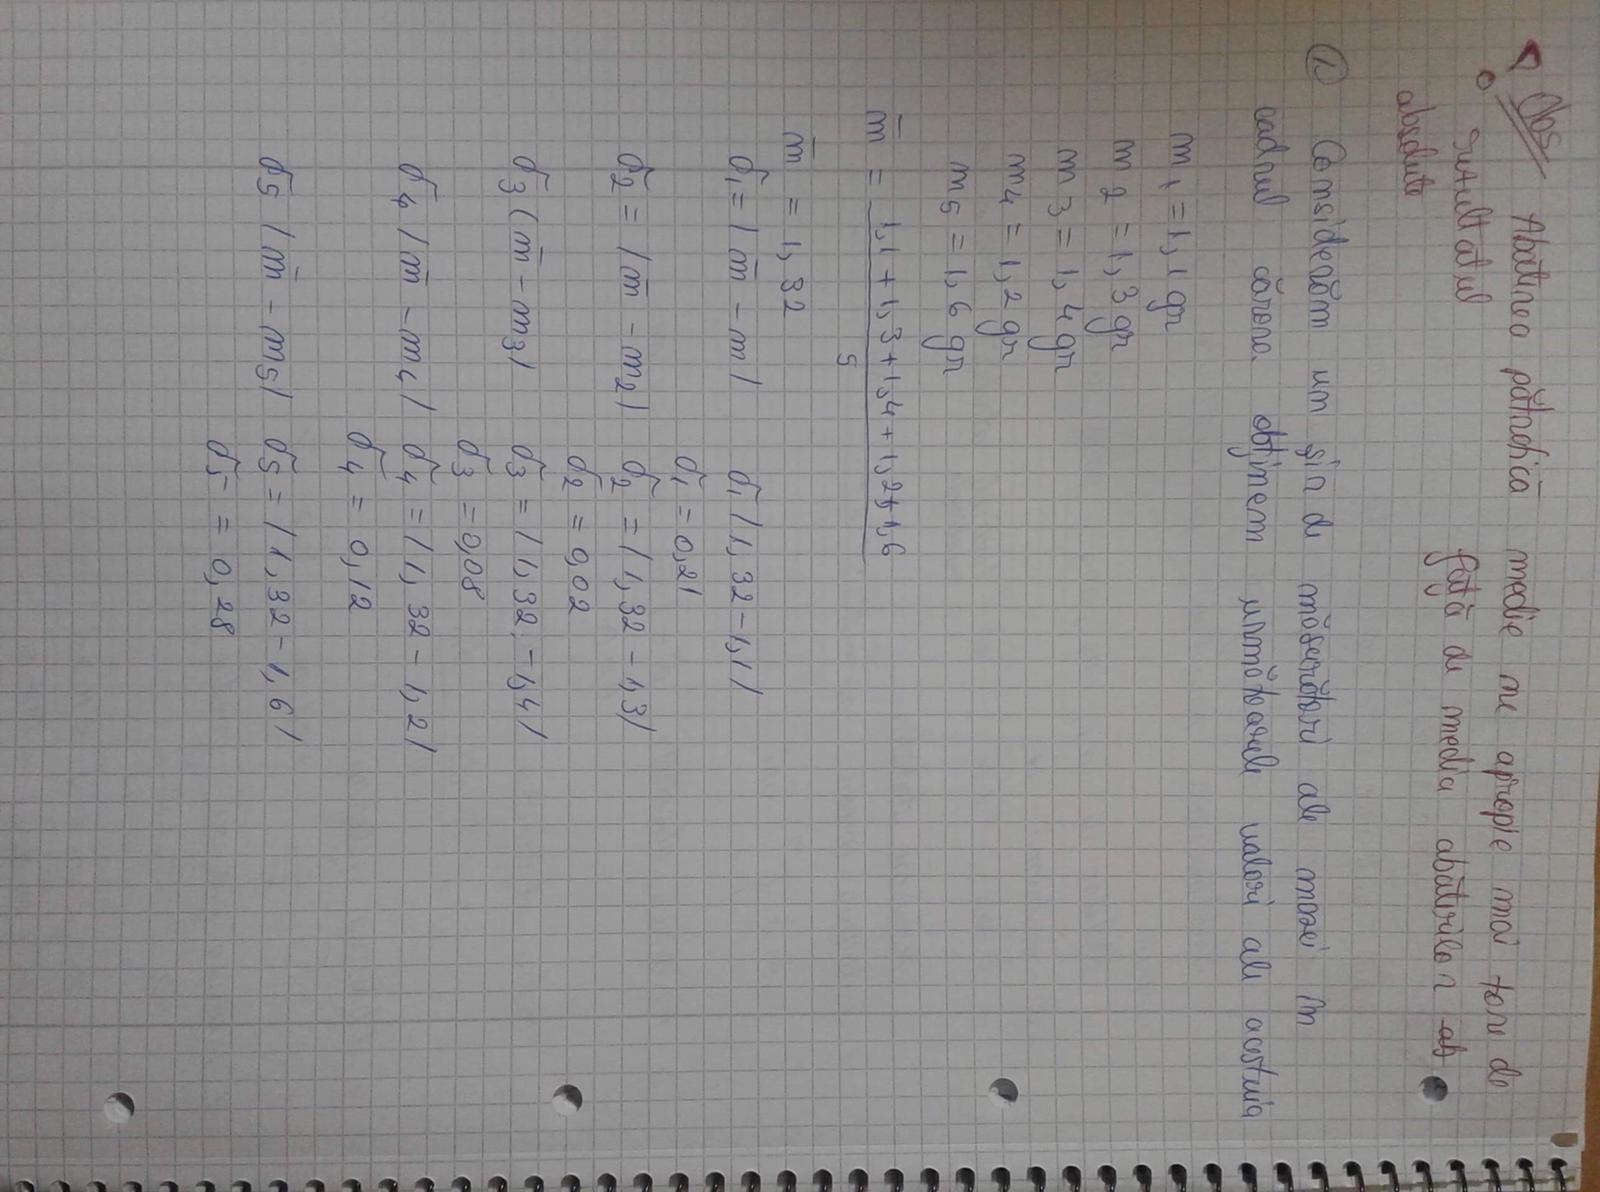 Obs Abaterea pătratică medie ne apropie mai tare de
rezultatul față de media abaterilor ab
absolute
② Considerăm un șir de măsurători ale masei în
cadrul cărora obținem următoarele valori ale acestuia
m1 = 1,1 gr
m2 = 1,3 gr
m3 = 1,4 gr
m4 = 1,2 gr
m5 = 1,6 gr
m̄ = 1,1 + 1,3 + 1,4 + 1,2 + 1,6
5
m̄ = 1,32
σ1 = |m̄ - m| σ1 |1,32 - 1,1|
σ1 = 0,21
σ2 = |m̄ - m2| σ2 = |1,32 - 1,3|
σ2 = 0,02
σ3 (m̄ - m3| σ3 = |1,32 - 1,4|
σ3 = 0,08
σ4 |m̄ - m4| σ4 = |1,32 - 1,2|
σ4 = 0,12
σ5 |m̄ - m5| σ5 = |1,32 - 1,6|
σ5 = 0,28